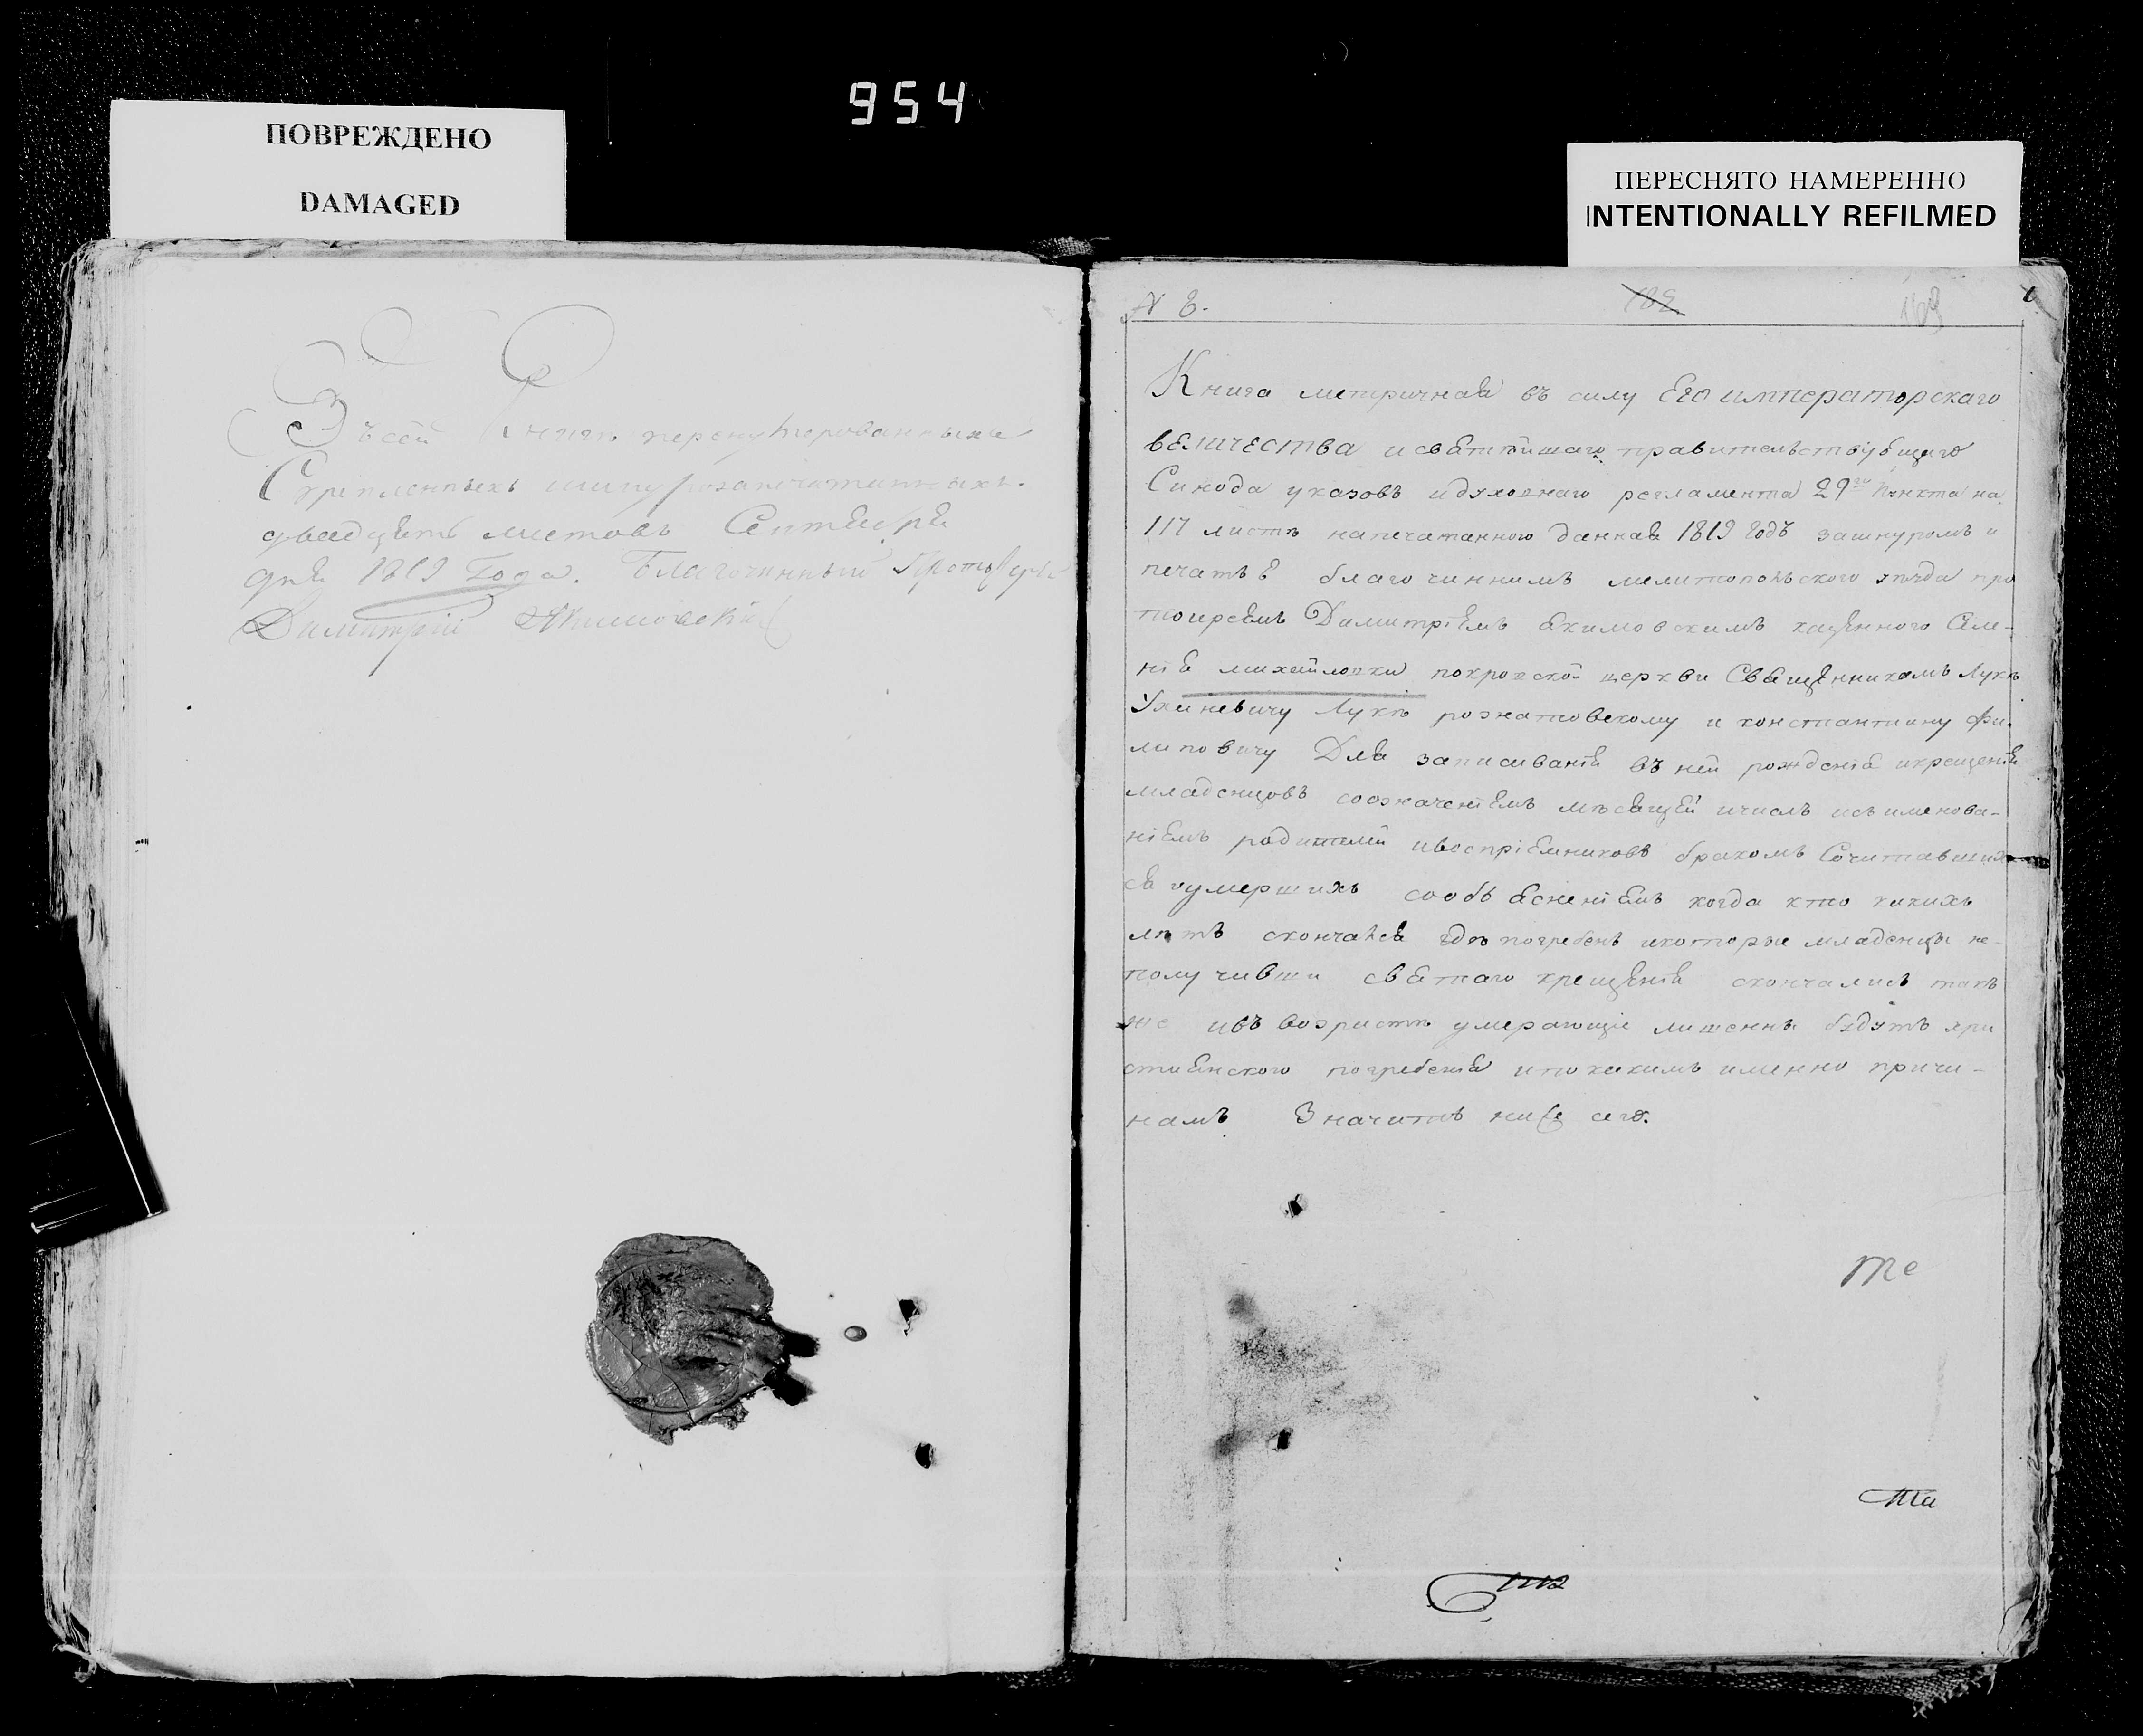 954
ПОВРЕЖДЕНО
DAMAGED
ПЕРЕСНЯТО НАМЕРЕННО
INTENTIONALLY REFILMED
Въ сей Книги перенумерованныхъ
Скрепленныхъ ишнурозапечатанныхъ
двадцять листовъ Септября
дня 1819 Года. Благочинный Протоіерей
Димитрій Якимовскій
N 8.
182
Книга метричная въ силу Его императорскаго
величества и святѣйшаго правительствующаго
Синода указовъ идуховнаго регламента 29го пункта на
117 листѣ напечатанного данная 1819 годъ зашнуромъ и
печатью благочиннимъ мелитопольского уѣзда про
тоиреемъ Димитріемъ якимовскимъ казенного Селе-
нія михайловки покровской церкви Священникомъ Лукѣ
Лукѣ рознатовскому и константину фи-
липовичу Для записиванія въ ней рожденія икрещенія
младенцовъ соозначеніемъ мѣсяцей ичислъ исъименова-
ніемъ родителей ивоспріемниковъ бракомъ Сочитавшихъ
ся иумершихъ сообъясненіемъ когда кто какихъ
лѣтъ скончался гдѣ погребенъ икоторые младенцы не-
получивши святаго крещенія скончались такъ
же ивъ возрастѣ умерающіе лишенны будутъ хри
стиянского погребенія ипокакимъ именно причи-
намъ Значитъ ниже сего.